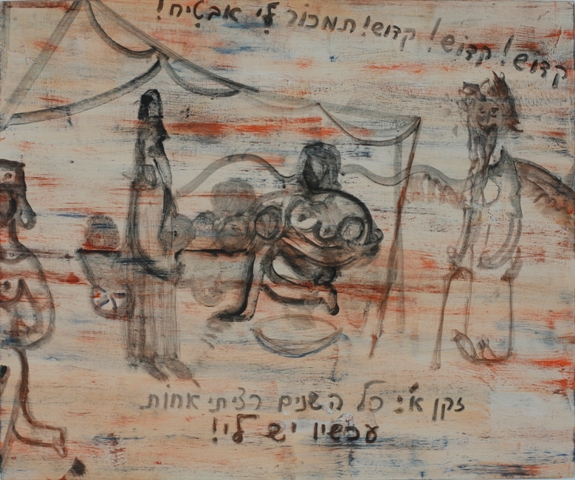 קדוש! קדוש! קדוש! תמכור לי אבטיח!
זקן א׳: כל השנים רציתי אחות.
עכשיו יש לי!